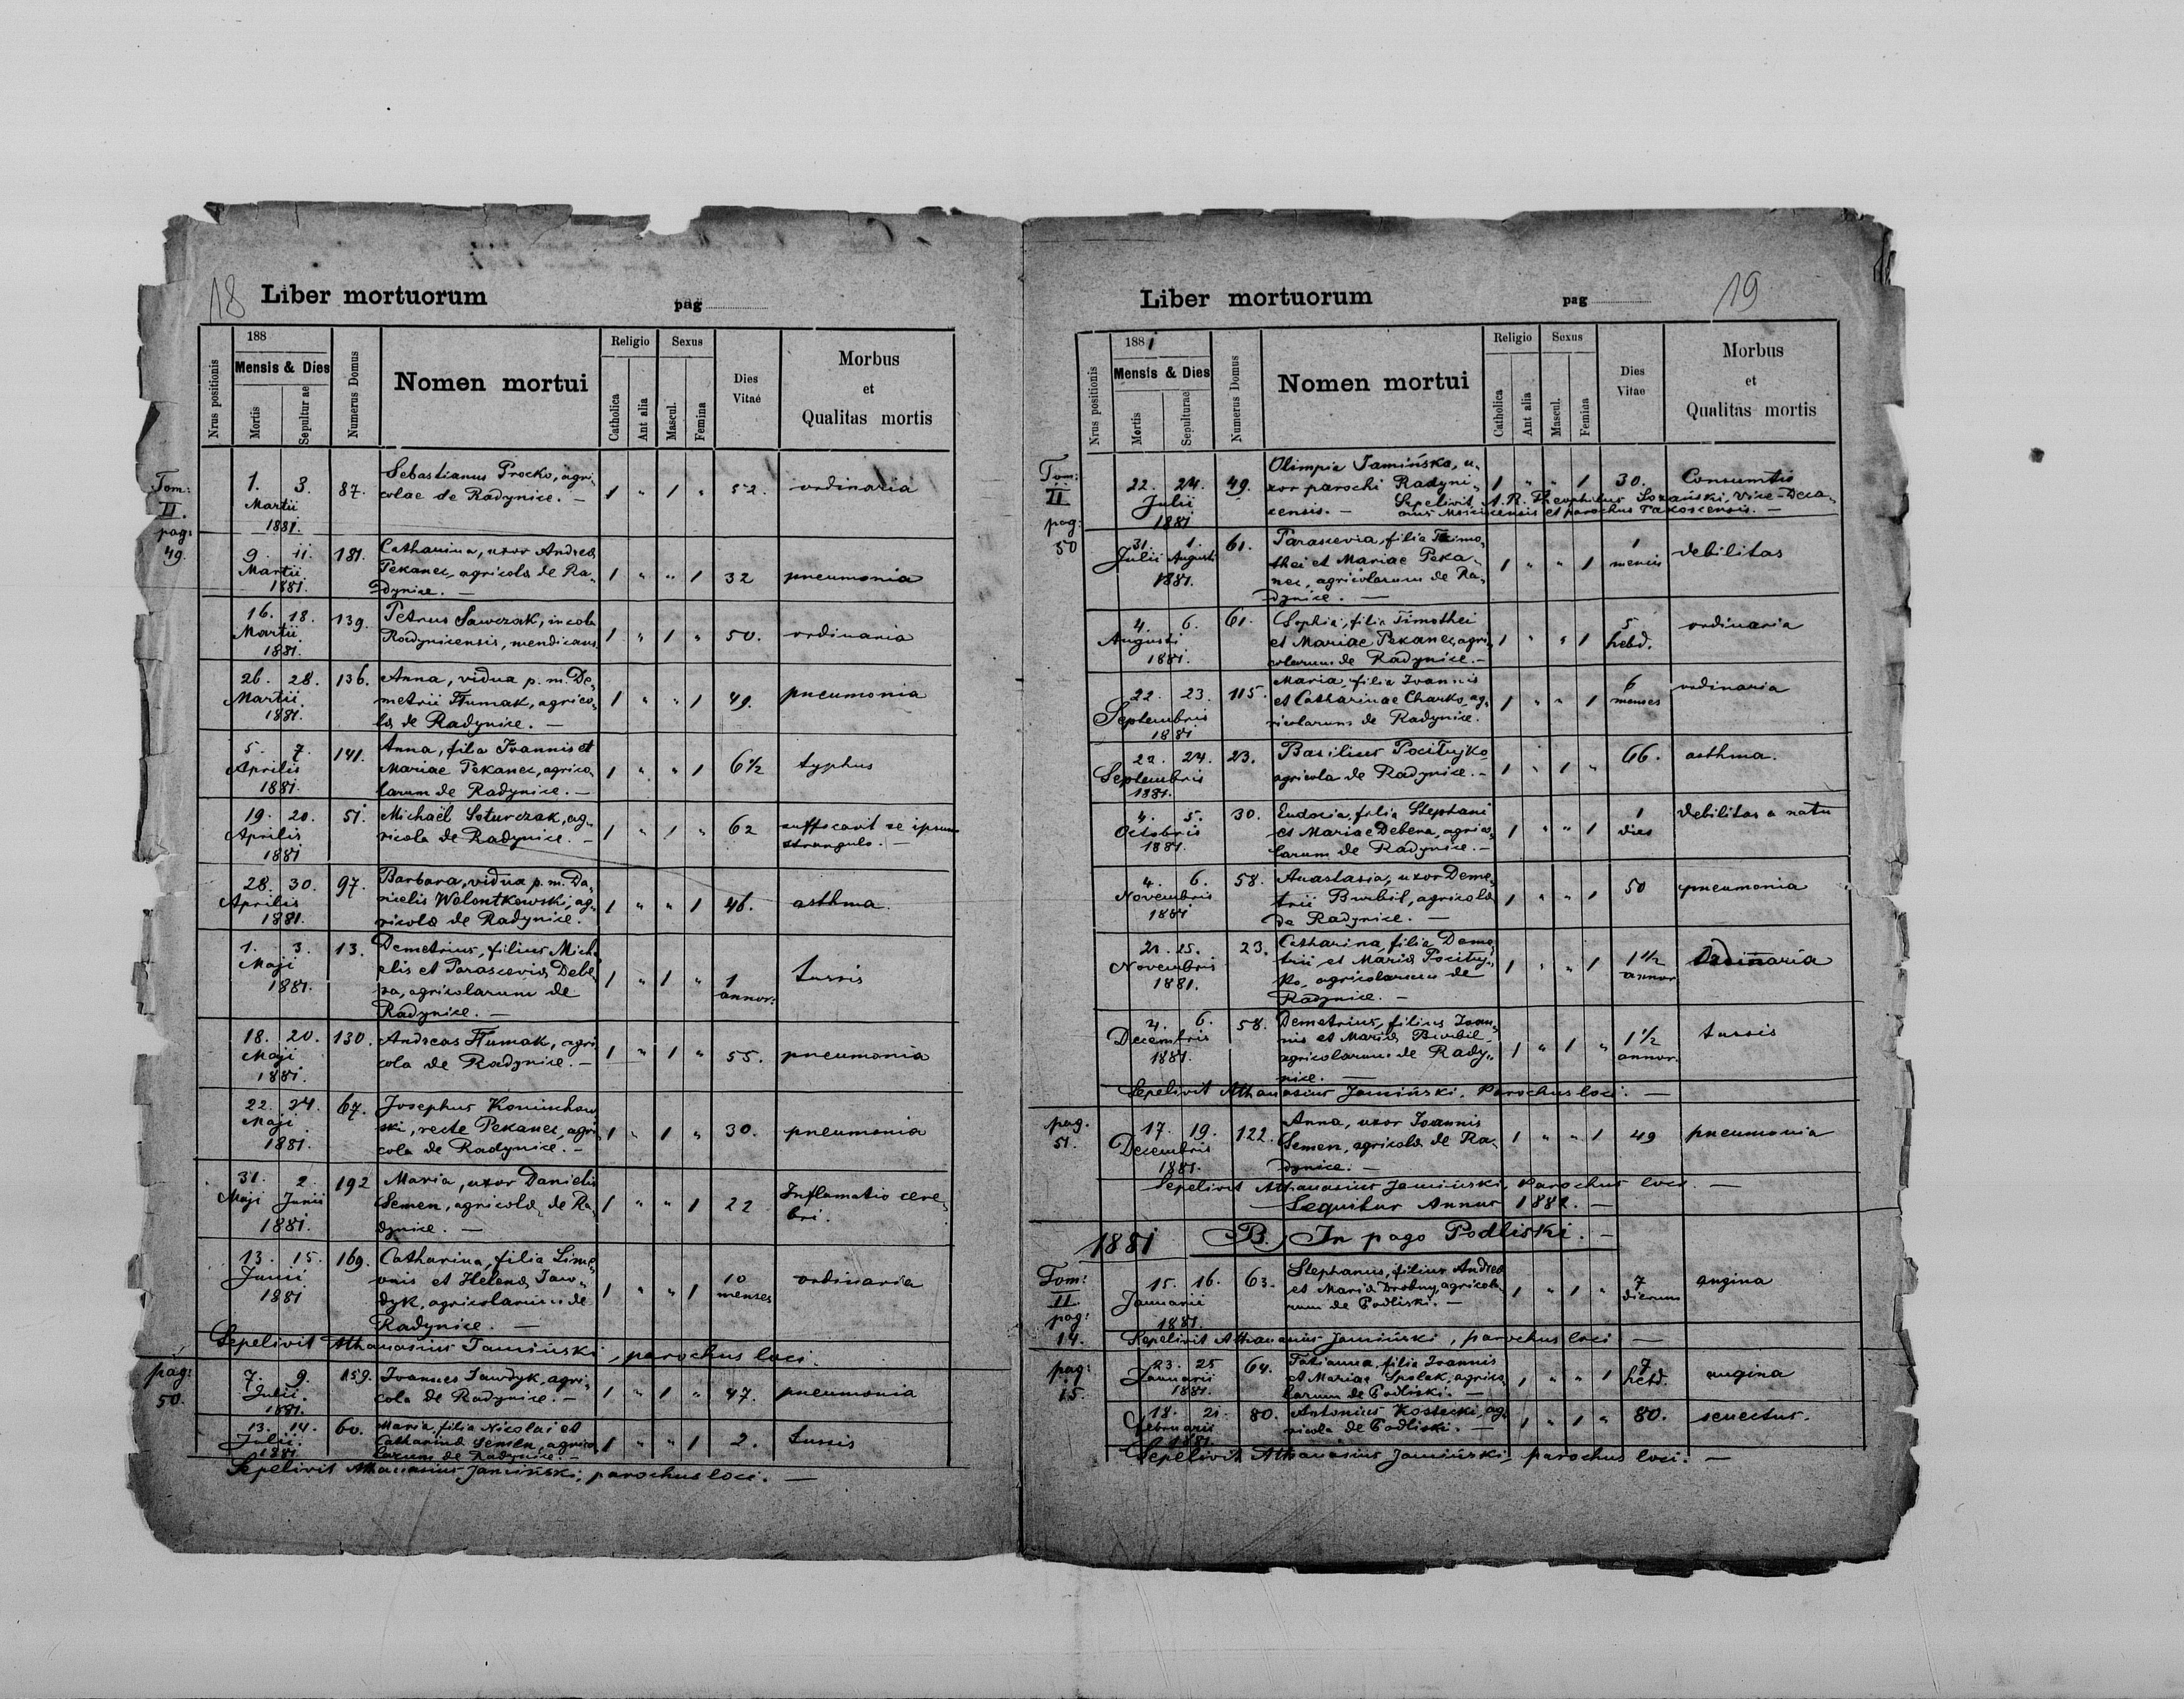 18
Liber mortuorum pag
Nrus positionis
188
Mensis & Dies
Mortis
Sepulturae
Numerus Domus
Nomen mortui
Religio
Catholica
Ant alia
Sexus
Mascul.
Femina
Dies Vitae
Morbus
et
Qualitas mortis
Tom: II. pag: 49.
1. 3. Martii 1881. 87. Sebastianus Procko, agri-
colae de Radynice. — 1 " 1 " 52. ordinaria
9. 11. Martii 1881. 181. Catharina, uxor Andreae
Pekanec, agricola de Ra-
dynice. — 1 " " 1 32 pneumonia
16. 18. Martii 1881. 139. Petrus Sawczak, incola
Radynicensis, mendicans 1 " 1 " 50. ordinaria
26. 28. Martii 1881. 136. Anna, vidua p. m. De-
metrii Humak, agrico-
la de Radynice. — 1 " " 1 49. pneumonia
5. 7. Aprilis 1881. 141. Anna, filia Ivannis et
Mariae Pekanec, agrico-
larum de Radynice. — 1 " " 1 6 1/2 typhus
19. 20. Aprilis 1881 51. Michaël Soturczak, ag-
ricola de Radynice. — 1 " 1 " 62 suffocavit se ipsum
strangulo. —
28. 30. Aprilis 1881. 97. Barbara, vidua p. m. Da-
nielis Wolontkowski, ag-
ricola de Radynice. 1 " " 1 46. asthma.
1. 3. Maji 1881. 13. Demetrius, filius Mich-
elis et Parasceviae Debe-
na, agricolarum de
Radynice. — 1 " 1 " 1 annor: tussis
18. 20. Maji 1881. 130. Andreas Humak, agri-
cola de Radynice. — 1 " 1 " 55. pneumonia
22. 24. Maji 1881. 67. Josephus Komischow
ski, recte Pekanec, agri-
cola de Radynice. — 1 " 1 " 30. pneumonia
31. 2. Maji Junii 1881. 192 Maria, uxor Danielis
Semen, agricola de Ra-
dynice. — 1 " " 1 22 Inflamatio cere-
bri.
13. 15. Junii 1881 169. Catharina, filia Sime-
onis et Helena Jaw-
dyk, agricolarum de
Radynice. — 1 " " 1 10 menses ordinaria
Sepelivit Athanasius Jamiński, parochus loci.
pag: 50.
7. 9. Julii. 1881. 159. Ivannes Jawdyk, agri-
cola de Radynice. — 1 " 1 " 47. pneumonia
13. 14. Julii. 1881 60. Maria, filia Nicolai et
Catharina Semen, agrico-
larum de Radynice. — 1 " " 1 2. tussis
Sepelivit Athanasius Jamiński, parochus loci. —
19
Liber mortuorum pag
Nrus positionis
1881
Mensis & Dies
Mortis
Sepulturae
Numerus Domus
Nomen mortui
Religio
Catholica
Ant alia
Sexus
Mascul.
Femina
Dies Vitae
Morbus
et
Qualitas mortis
Tom: II pag: 50
22. 24. Julii 1881 49. Olimpia Jamińska, u-
xor parochi Radyni-
censis. — 1 " " 1 30. Consumtio
Sepelivit A. R. Theophilus Sozański, Vice-Deca-
nus Mościscensis et parochus
31. 1. Julii Augusti 1881. 61. Parascevia, filia Timo-
thei et Mariae Peka-
nec, agricolarum de Ra-
dynice. — 1 " " 1 1 mensis debilitas
4. 6. Augusti 1881. 61. Sophia, filia Timothei
et Mariae Pekanec, agri-
colarum de Radynice. — 1 " " 1 5 hebd. ordinaria
22. 23. Septembris 1881 115. Maria, filia Ivannis
et Catharinae Charko, ag-
ricolarum de Radynice. 1 " " 1 6 menses ordinaria
22. 24. Septembris 1881. 23. Basilius Pocitujko,
agricola de Radynice. — 1 " 1 " 66. asthma.
4. 5. Octobris 1881. 30. Eudocia, filia Stephani
et Mariae Debena, agrico-
larum de Radynice. — 1 " " 1 1 dies debilitas a natu
4. 6. Novembris 1881 58. Anastasia, uxor Deme-
trii Burbil, agricola
de Radynice. — 1 " " 1 50 pneumonia
21. 25. Novembris 1881. 23. Catharina, filia Deme-
trii et Maria Pocituj-
ko, agricolarum de
Radynice. — 1 " " 1 1 1/2 annor. Ordinaria
4. 6. Decembris 1881. 58. Demetrius, filius Ivan-
nis et Maria Burbil,
agricolarum de Rady-
nice. — 1 " 1 " 1 1/2 annor. tussis
Sepelivit Athanasius Jamiński, Parochus loci. —
pag. 51.
17. 19. Decembris 1881. 122. Anna, uxor Ioannis
Semen, agricola de Ra-
dynice. — 1 " " 1 49 pneumonia
Sepelivit Athanasius Jamiński, Parochus loci. —
Sequitur Annus 1882. —
1881 B. In pago Podliski. —
Tom: II pag: 14.
15. 16. Januarii 1881. 63. Stephanus, filius Andreae
et Maria Drobny, agricola-
rum de Podliski. — 1 " 1 " 7 dierum angina
Sepelivit Athanasius Jamiński, parochus loci —
pag: 15.
23. 25 Januarii 1881. 64. Tatianna, filia Ivannis
et Mariae Spolak, agrico-
larum de Podliski. — 1 " " 1 7 hebd. angina
18. 21. Februarii 1881. 80. Antonius Kostecki, ag-
ricola de Podliski. — 1 " 1 " 80. senectus.
Sepelivit Athanasius Jamiński, parochus loci. —